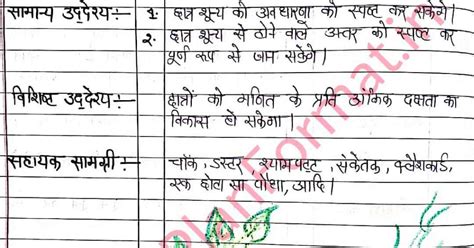 सामान्य उद्देश्य :- 1. छात्र शून्य की अवधारणा को स्पष्ट कर सकेंगे।
2. छात्र शून्य से होने वाले अन्तर को स्पष्ट कर
पूर्ण रूप से जान सकेंगे।
विशिष्ट उद्देश्य :- छात्रों को गणित के प्रति आंकिक दक्षता का
विकास हो सकेगा।
सहायक सामग्री :- चॉक, डस्टर, श्यामपट्ट, संकेतक, फ्लैशकार्ड,
एक छोटा सा पौधा, आदि।
PlanFormat.in